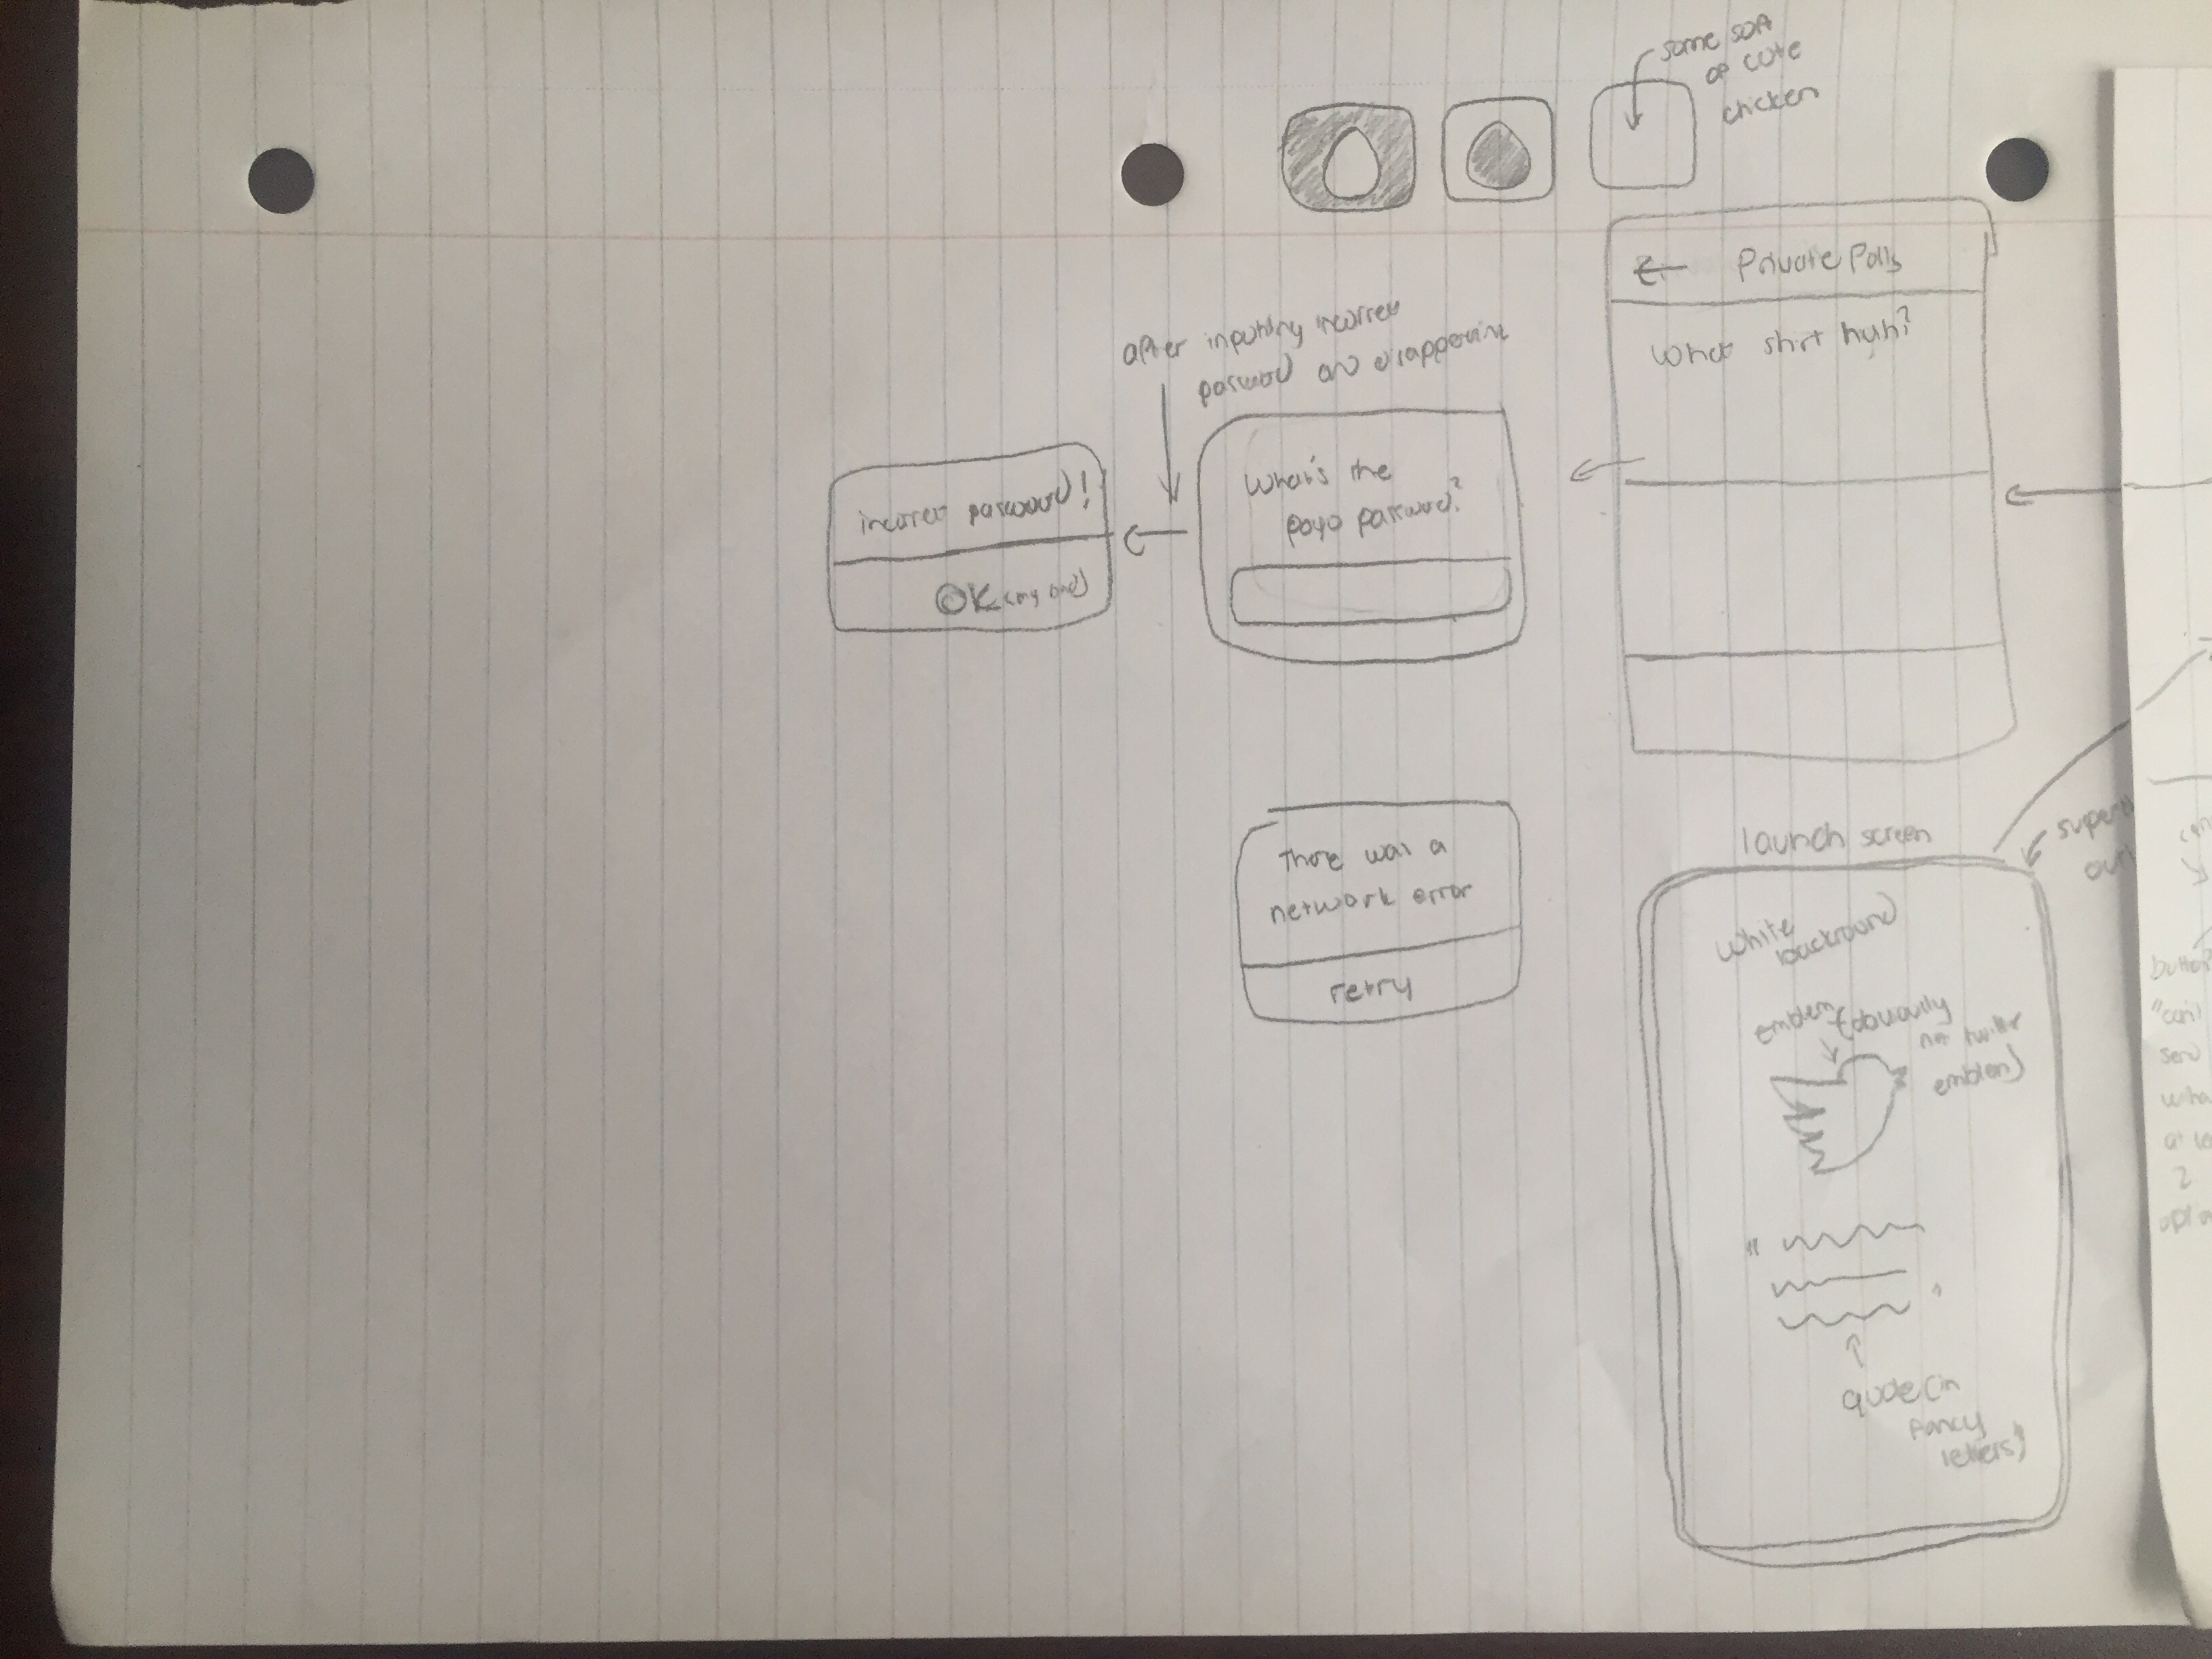 some sort
of cute
chicken
Private Polls
What shirt huh?
after inputing incorrect
password and disappearing
What's the
poyo password?
incorrect password!
OK (my bad)
There was a
network error
retry
launch screen
super
white
backround
emblem (obviously
not twitter
emblem)
"
quote (in
fancy
letters)
button
at
2